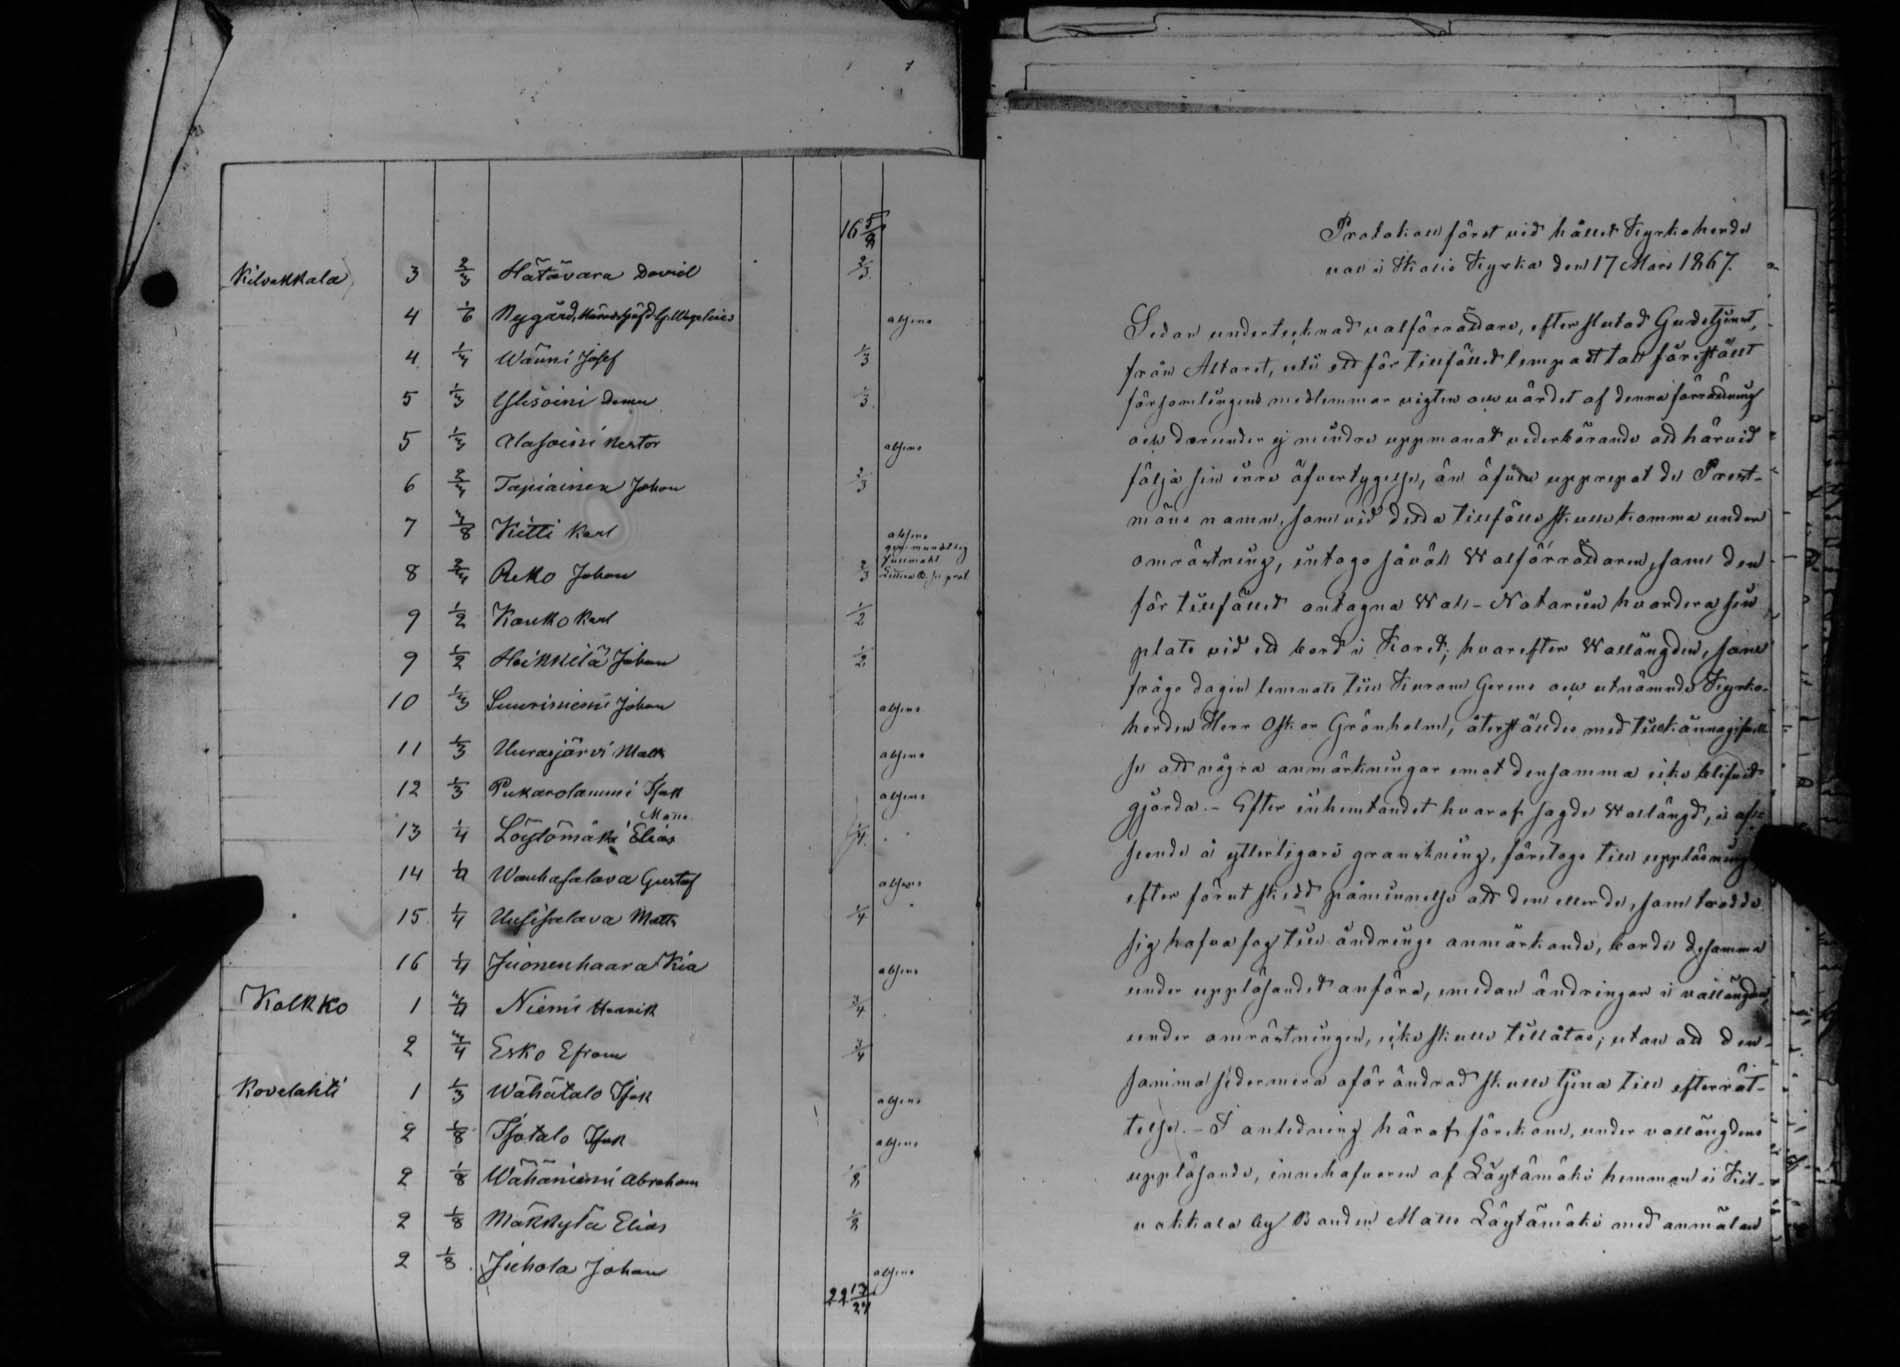 16 5/8
Kilvakkala 3 2/3 Hätävara David 2/3
4 1/6 Nygård, absens
4 1/3 Wänni Josef 1/3
5 1/3 Ylisoini 1/3
5 1/3 Alasoini Nestor absens
6 2/3 Tapiainen Johan 2/3
7 3/8 Kitti Karl absens
8 2/3 Reko Johan 2/3
9 1/2 Kauko Karl 1/2
9 1/2 Heikkilä Johan 1/2
10 1/3 Suuriniemi Johan absens
11 1/3 Uurasjärvi Matts absens
12 1/3 Pukarolammi Isak absens
Matts
13 1/4 Löytömäki Elias 1/4
14 1/4 Wanhasalava Gustaf absens
15 1/4 Uusisalava Matts 1/4
16 1/4 Juonenhaara Kia absens
Kolkko 1 3/4 Niemi Henrik 3/4
2 3/4 Esko Efram 3/4
Kovelahti 1 1/3 Wähätalo Isak absens
2 1/8 Isotalo Isak absens
2 1/8 Wähäniemi Abraham 1/8
2 1/8 Mäkkylä Elias 1/8
2 1/8 Juhola Johan absens
22 13/24
Protokoll fördt vid hållet Kyrkoherde
val i Ikalis Kyrka den 17 Mars 1867.
Sedan undertecknad valförrättare, efter slutad Gudstjenst,
från Altaret, uti ett för tillfället lempadt tal föreställt
församlingens medlemmar vigten och värdet af denna förrättning
och derunder ej mindre uppmanat vederbörande att härvid
följa sin inre öfvertygelse, än äfven upprepat de Prest-
mäns namn, som vid detta tillfälle skulle komma under
omröstning, intogo såväl Walförrättaren, som den
för tillfället antagna Wal-Notarien hvardera sin
plats vid ett bord i Koret; hvarefter Wallängden, som
herden Herr Oskar Grönholm, återställdes med tillkännagifvel-
se att några anmärkningar emot densamma icke blifvit
gjorda. - Efter inhemtandet hvaraf sagde Wallängd, i af-
seende å ytterligare granskning, företogs till uppläsning
efter förut skedd påminnelse att den eller de, som trodde
sig hafva fog till ändrings anmärkande, borde desamma
under uppläsandet anföra, emedan ändringar i vallängden
under omröstningen, icke skulle tillåtas; utan att den-
samma sedermera oförändrad skulle tjena till efterrät-
telse. - I anledning häraf förekom, under vallängdens
uppläsande, innehafvaren af Löytömäki hemman i Kil-
vakkala by Bonden Matts Löytömäki med anmälan